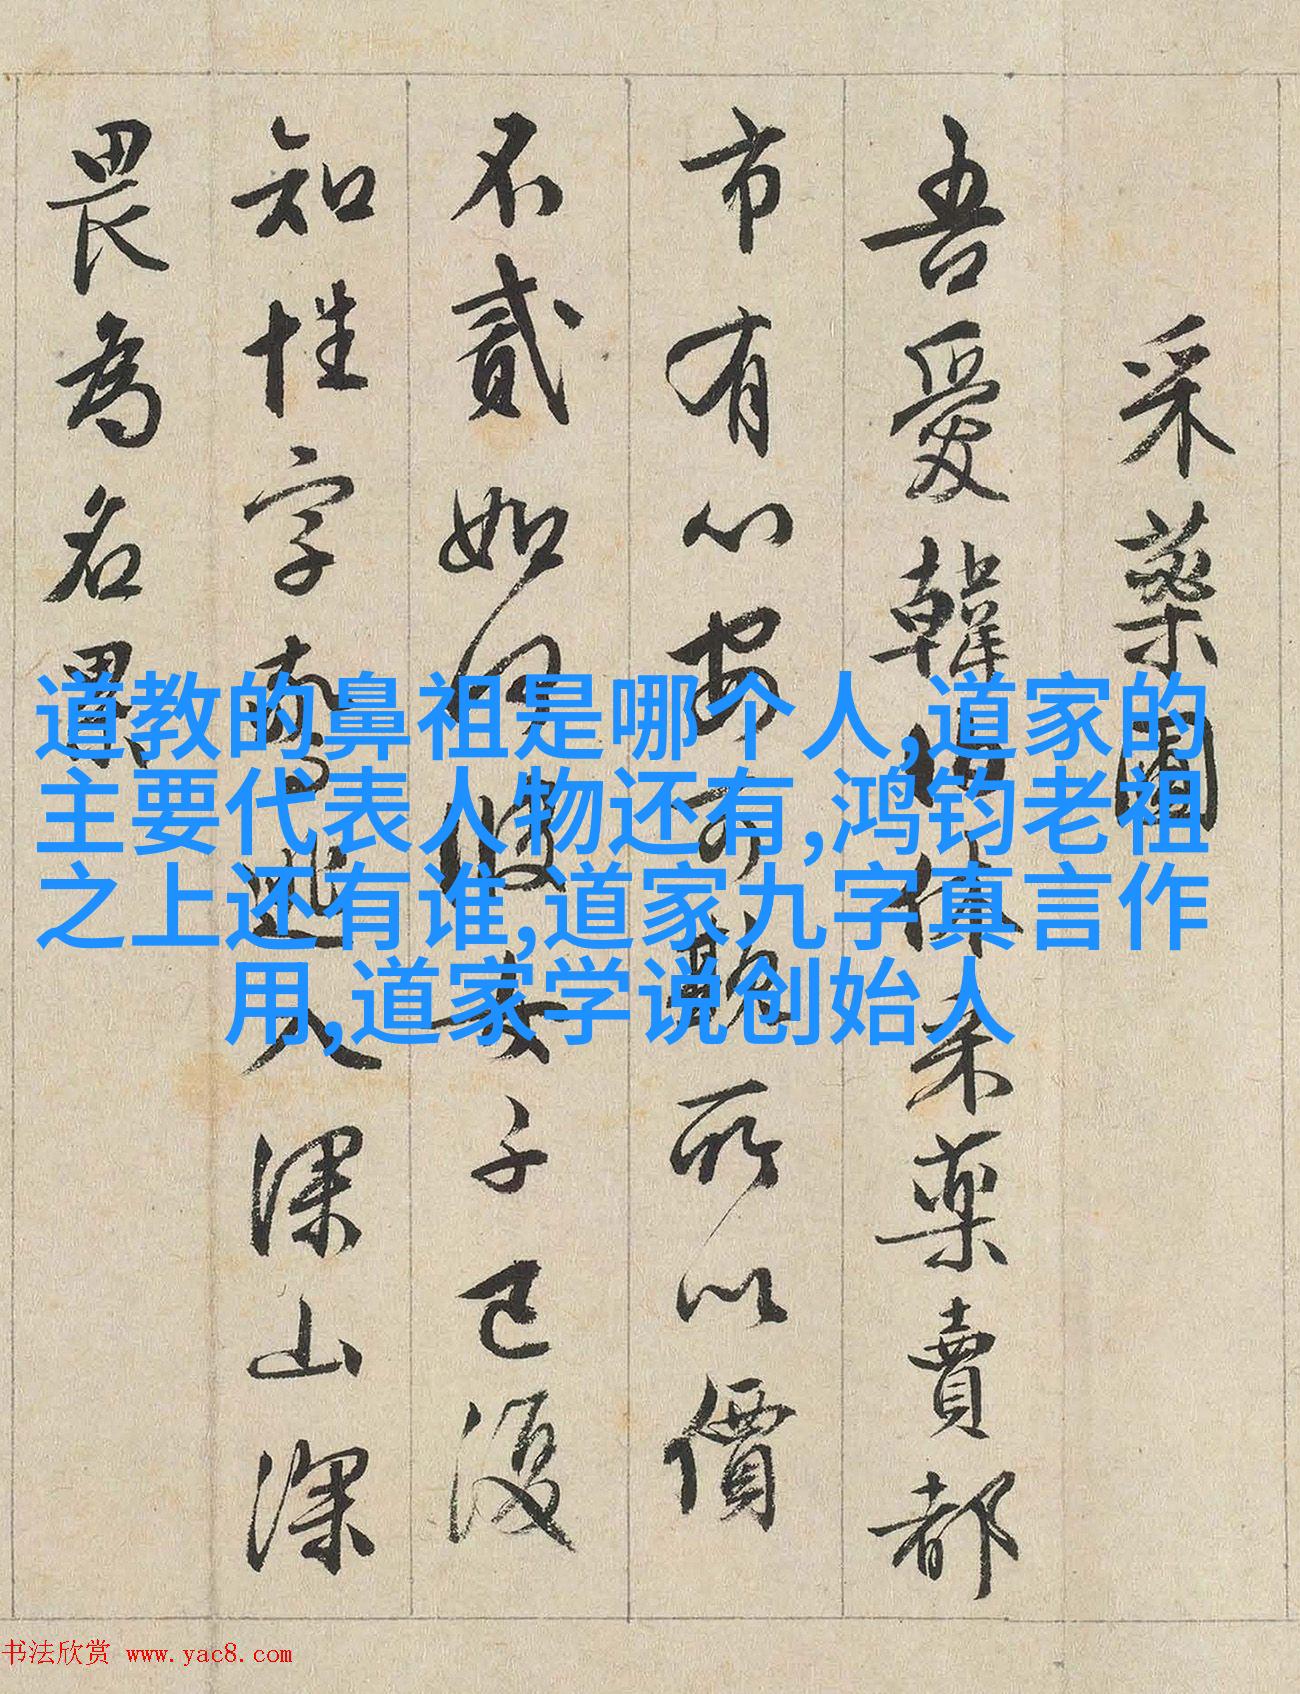 采藥圖
吾愛韓伯休采藥賣都
市有心安可欺所以價
不貳如何彼女子已復
知性字逃入深山深
畏為名累
道教的鼻祖是哪个人,道家的
主要代表人物还有,鸿钧老祖
之上还有谁,道家九字真言作
用,道家学说创始人
书法欣赏 www.yac8.com